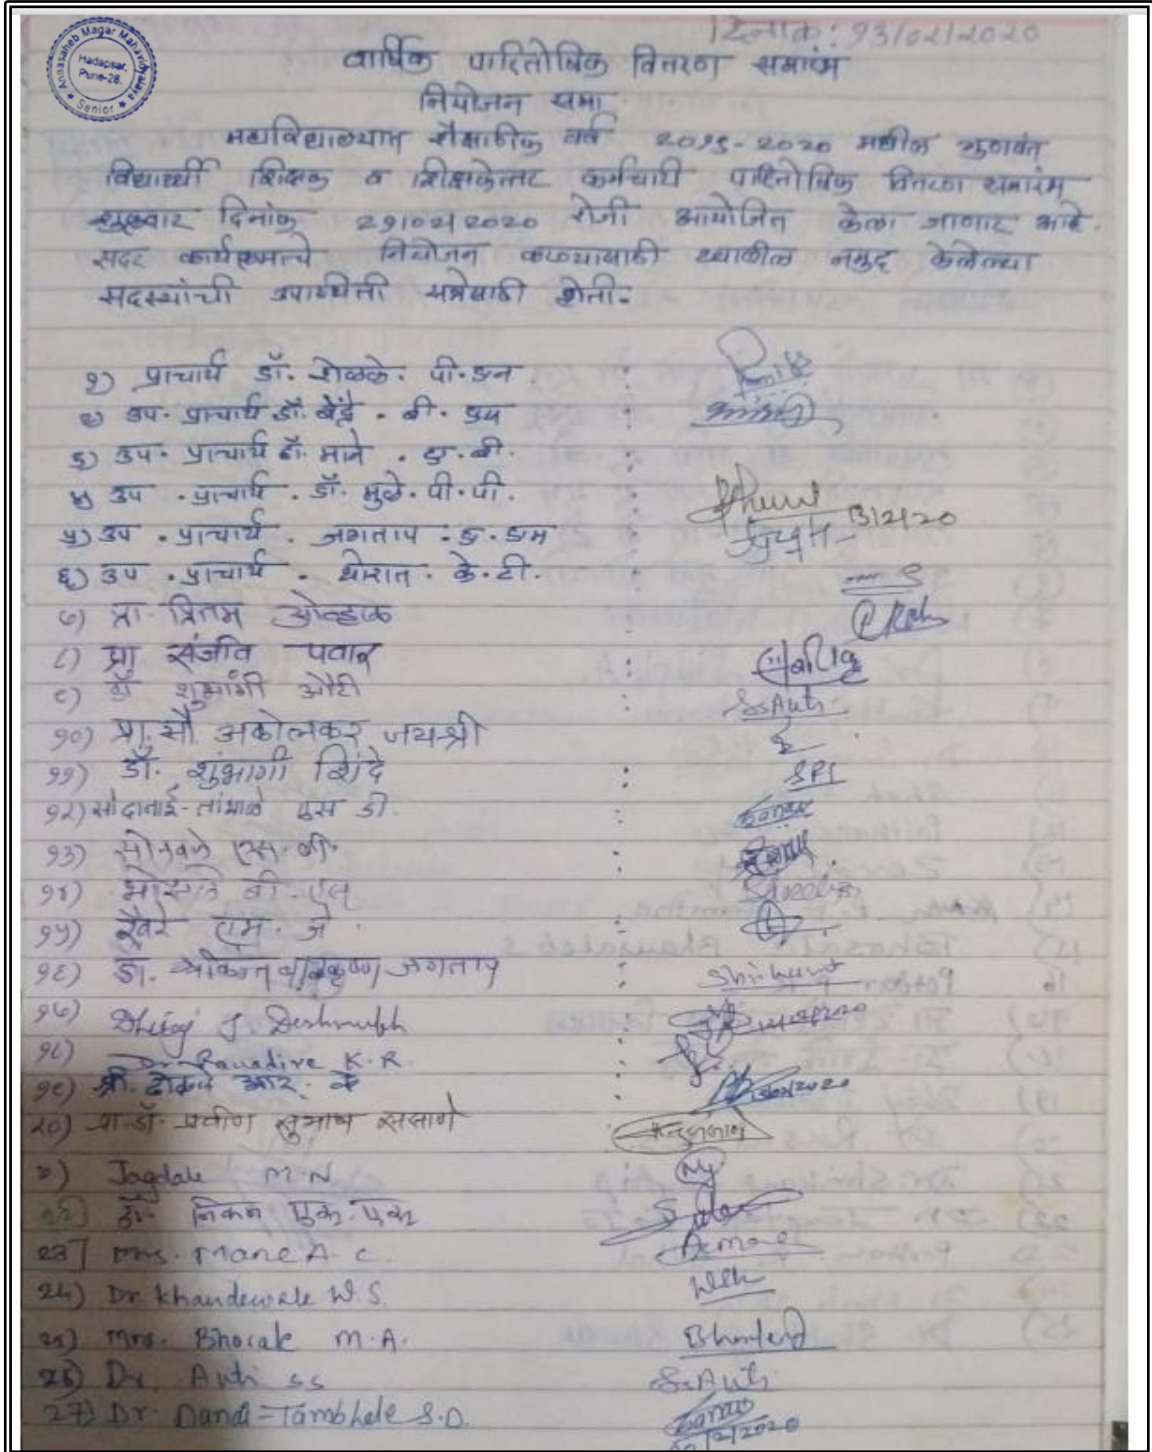 Annasaheb Magar Mahavidyalaya
Hadapsar, Pune-28.
Senior
दिनांक: १३/०२/२०२०
वार्षिक पारितोषिक वितरण समारंभ
नियोजन सभा
महाविद्यालयात शैक्षणिक वर्ष २०१९-२०२० मधील गुणवंत
विद्यार्थी शिक्षक व शिक्षकेत्तर कर्मचारी पारितोषिक वितरण समारंभ
शुक्रवार दिनांक २१/०२/२०२० रोजी आयोजित केला जाणार आहे.
सदर कार्यक्रमाचे नियोजन करण्यासाठी खालील नमुद केलेल्या
सदस्यांची उपस्थिती सभेसाठी होती.
१) प्राचार्य डॉ. शेळके. पी. एन. :
२) उप. प्राचार्य डॉ. बेंद्रे. बी. एम :
३) उप. प्राचार्य डॉ. माने. ए. बी. :
४) उप. प्राचार्य. डॉ. मुळे. पी. पी. :
५) उप. प्राचार्य. जगताप. ए. एम : 13/2/20
६) उप. प्राचार्य. थोरात. के. टी. :
७) प्रा. प्रितम ओव्हाळ :
८) प्रा संजीव पवार :
९) डॉ शुभांगी औटी : S.Auti
१०) प्रा. सौ. अकोलकर जयश्री :
११) डॉ. शुंभागी शिंदे :
१२) सौ दानाई-तांभाळे एस डी. :
१३) सोनवने एस. बी. :
१४) भोसले बी. एस :
१५) खैरे एम. जे. :
१६) डॉ. श्रीकांत बाळकृष्ण जगताप : Shrikant
१७) Dhiraj J Deshmukh :
१८) Dr. Ranadive K. R. :
१९) श्री. ढोकळे आर. के : 13/02/2020
२०) प्रा. डॉ. प्रवीण सुभाष ससाणे
२१) Jagdale M. N
22) डॉ. निकम एस. एस
23) Mrs. Mane A. C. Acmane
24) Dr Khandewale W. S.
25) Mrs. Bhorale M. A.
26) Dr. Auti S S S.Auti
27) Dr. Danai-Tambhale S. D.